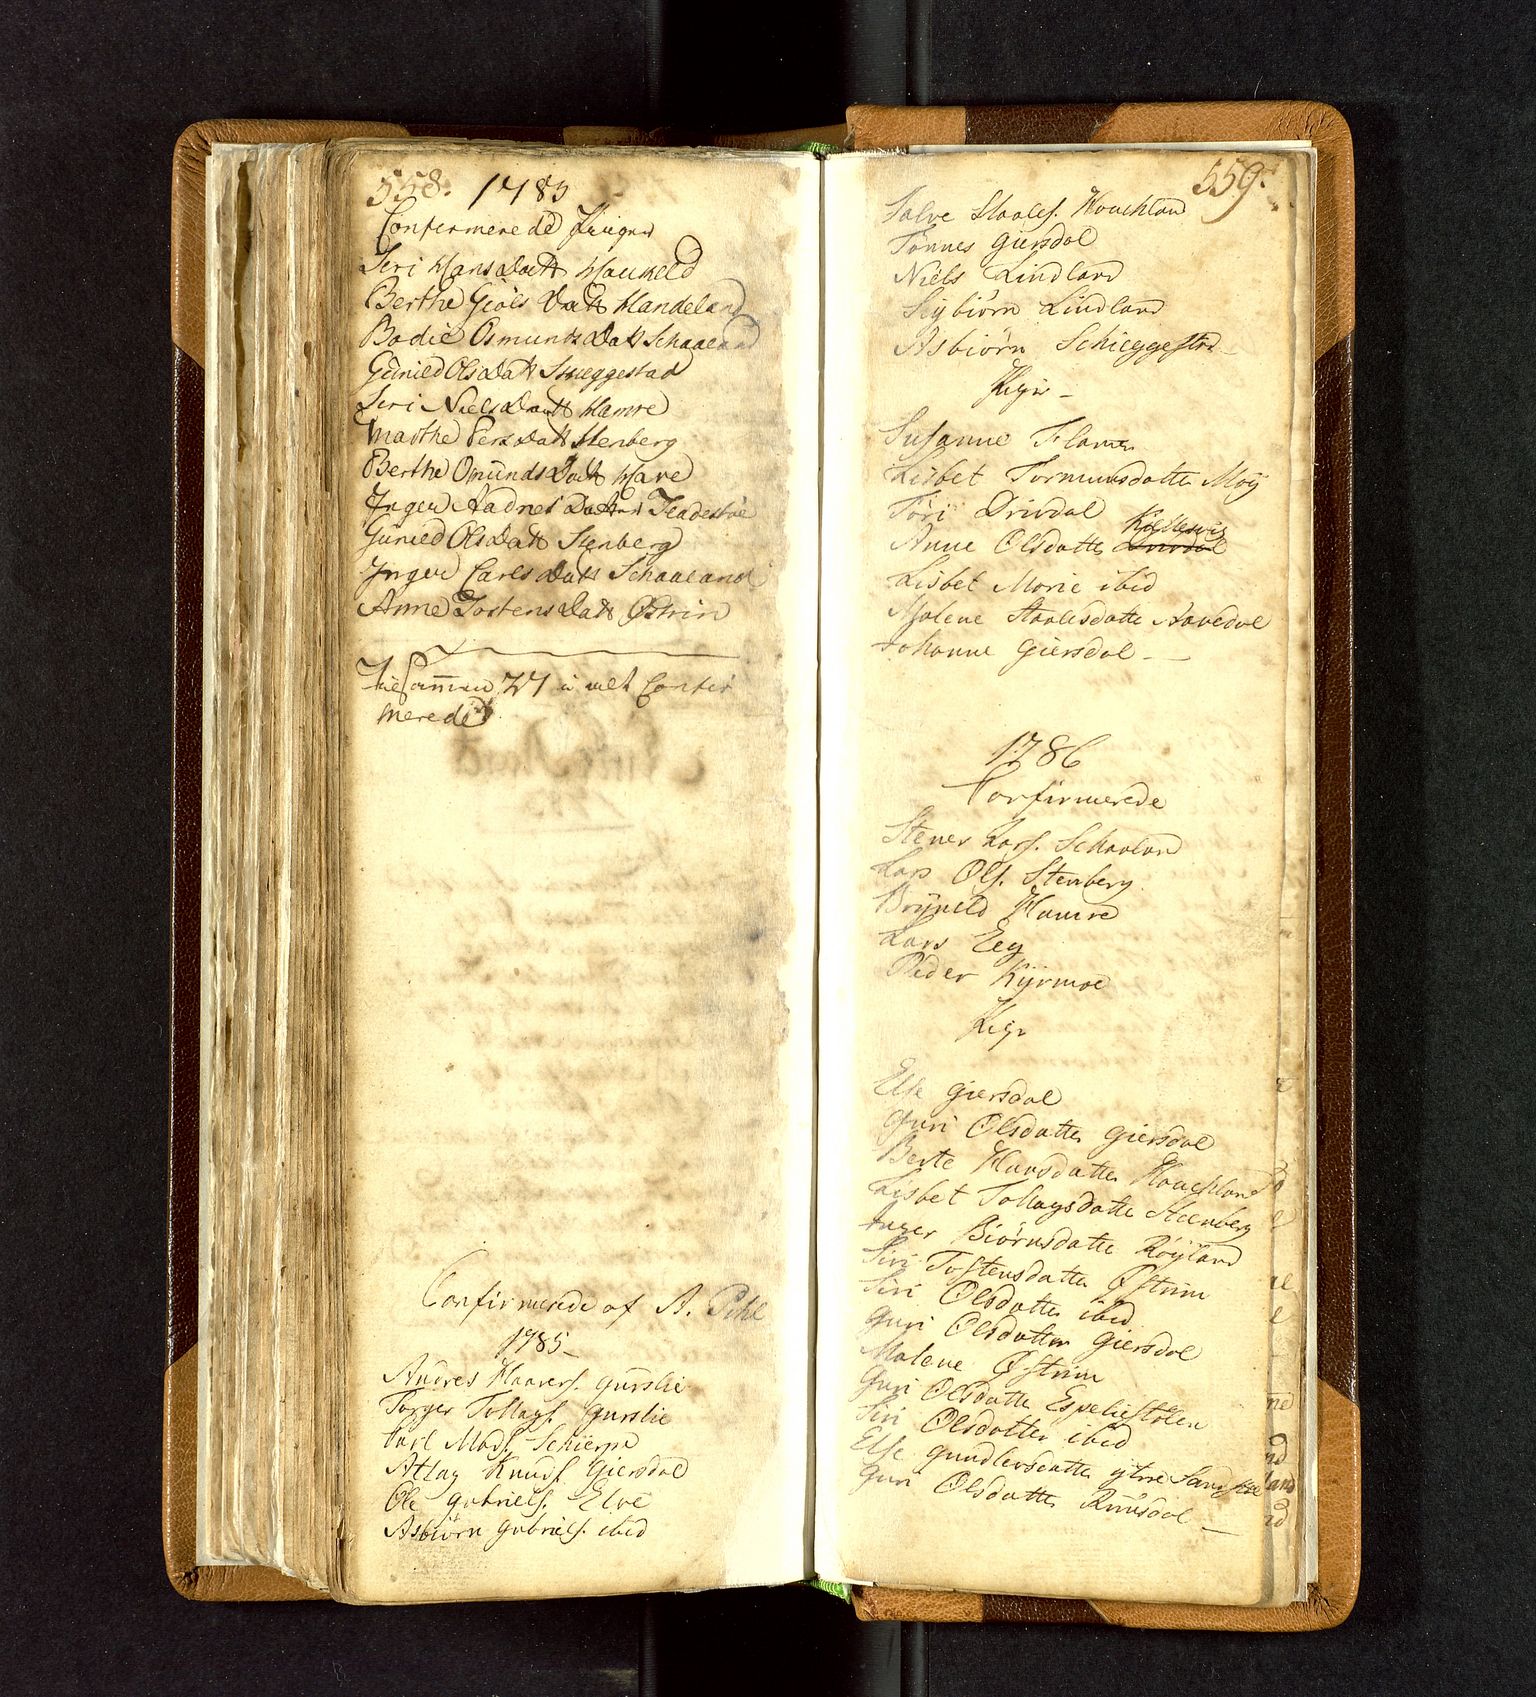 558. 1783
Confermerede Piiger
Siri Hans Datt Haukeld
Berthe Giøls Datt Handeland
Bodil Osmunds Datt Schaaeland
Guniled Ols Datt Skieggestad
Siri Niels Datt Hamre
Marthe Pers Datt Stenberg
Berthe Omunds Datt Have
Inger Aadnes Datter
Guniled Ols Datt Stenberg
Inger Carls Datt Schaaeland
Anne Tostens Datt Østrin
Tilsammen 27 Confir
merede
Confirmerede af A. Pihl
1785
Andres Haavers. Gurslie
Torger Tollags. Gurslie
Carl Mads. Schierpe
Atlag Knuds. Giersdal
Ole Gabriels. Elve
Asbiørn Gabriels. ibid
559.
Salve Staales. Houchland
Tønnes Giersdal
Niels Lindland
Seybiørn Lindland
Asbiørn Schieggestad
Piger
Susanne Flamen
Lisbet Tormunsdatter Moy
Tøri Drivdal
Anne Olsdatter Drivdal
Lisbet Marie ibid
Malene Staalesdatter Aavedal
Johanne Giersdal
1786
Confirmerede
Stener Lars. Schaaland
Lars Ols. Stenberg
Bryneld Hamre
Lars Eeg
Peder Kyrmoe
Piger
Else Giersdal
Guri Olsdatter Giersdal
Berte Hansdatter Houchland
Lisbet Tollagsdatter Steenberg
Inger Biørnsdatter Røyland
Siri Tostensdatter Østrim
Siri Olsdatter ibid
Guri Olsdatter Giersdal
Malene Østrim
Guri Olsdatter Espelistølen
Siri Olsdatter ibid
Else Gundlersdatter ytre
Guri Olsdatter Ruusdal